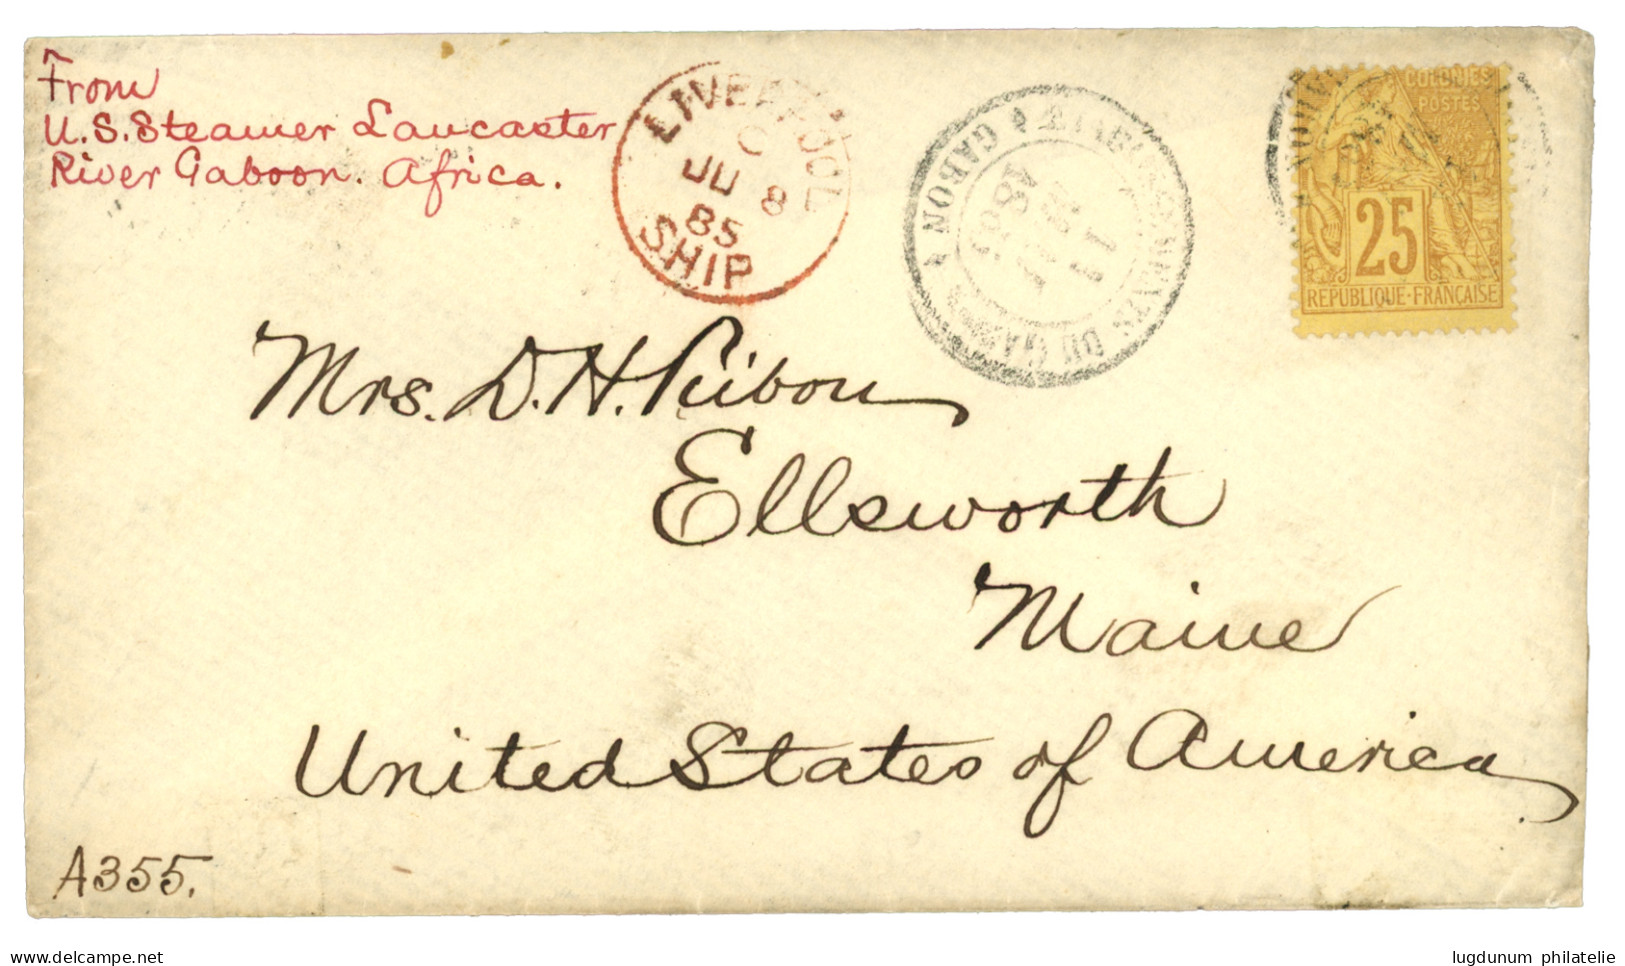 From
U.S. Steamer Lancaster
River Gaboon. Africa.
LIVERPOOL
C
JU 8
85
SHIP
GABON
COLONIES
POSTES
25
REPUBLIQUE-FRANÇAISE
Mrs. D. H.
Ellsworth
Maine
United States of America.
A355.
www.delcampe.net
lugdunum philatelie